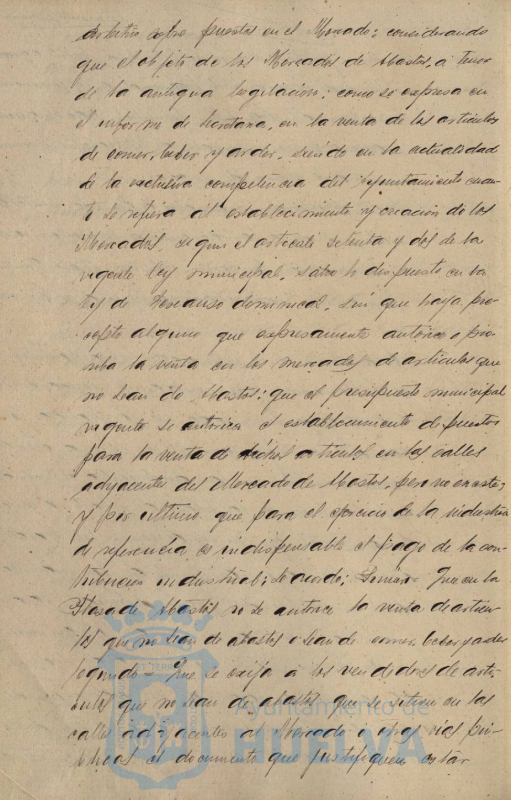 Arbitrio sobre puestos en el Mercado; considerando
que el objeto de los Mercados de Abastos, a tenor
de la antigua legislación, como se expresa en
el informe de Secretaria, en la venta de los artículos
de comer, beber y arder, siendo en la actualidad
de la exclusiva competencia del Ayuntamiento cuan-
to se refiera al establecimiento y creación de los
Mercados, segun el articulo setenta y dos de la
vigente ley municipal, salvo lo dispuesto en la
ley de Descanso dominical, sin que haya pre-
cepto alguno que expresamente autorice o prohi-
ba la venta en los mercados de articulos que
no sean de Abastos; que el presupuesto municipal
vigente se autoriza el establecimiento de puestos
para la venta de dichos articulos en las calles
adyacentes del Mercado de Abastos, pero no en este;
y por ultimo que para el ejercicio de la industria
de referencia es indispensable el pago de la con-
tribucion industrial; se acordo: Primero= Que en la
Plaza de Abastos no se autorice la venta de articu-
los que no sean de abastos o sean de comer, beber y arder
Segundo= Que se exija à los vendedores de arti-
culos que no sean de abastos que se situen en las
calles adyacentes al Mercado u otras vias pú-
blicas el documento que justifiquen estar
Ayuntamiento de
HUELVA